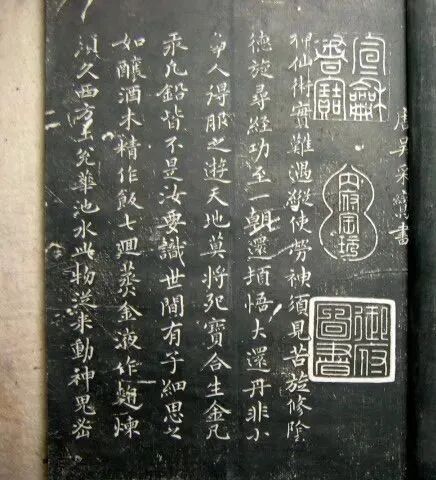 唐吳采鸞書
宣龢書寶
御府圖書
神仙術實難遇縱使勞神須見苦於修陰
德旋尋經功至一朝還頓悟大還丹非小
人得服之遊天地莫將死寶合生金凡
汞凡鉛皆不是汝要識世間有子細思之
如釀酒木精作飯七迴蒸金液作麴煉
須久西方兌華池水此物從來動神鬼